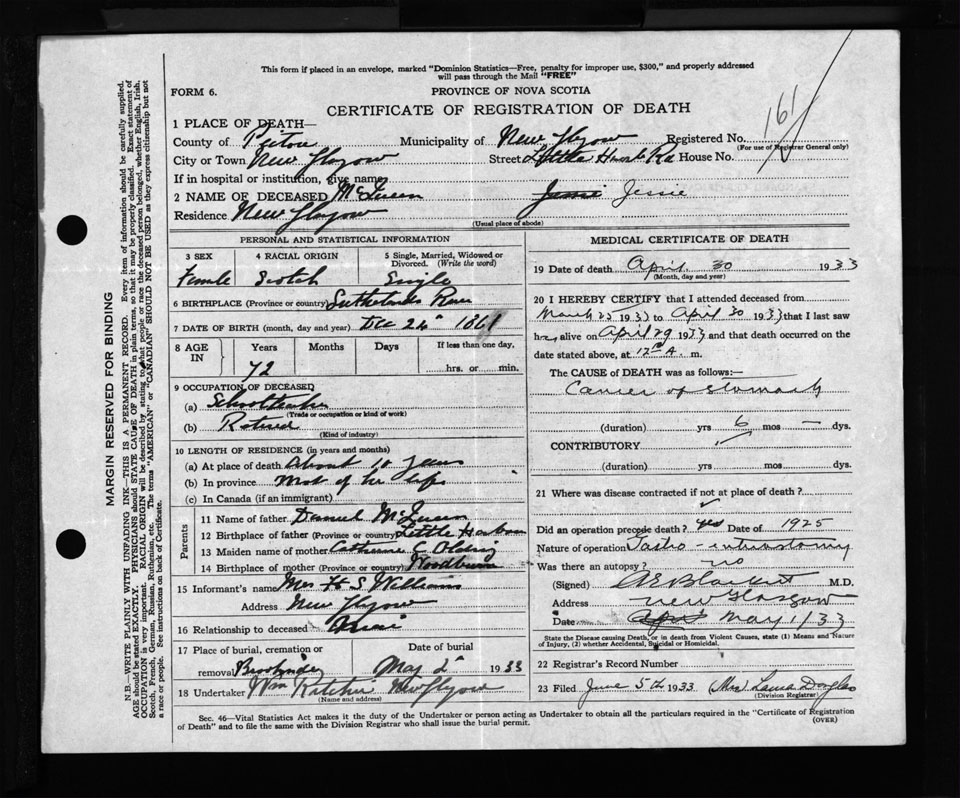 This form if placed in an envelope, marked "Dominion Statistics—Free, penalty for improper use, $300," and properly addressed
will pass through the Mail "FREE"
FORM 6.
PROVINCE OF NOVA SCOTIA
CERTIFICATE OF REGISTRATION OF DEATH
161
1 PLACE OF DEATH—
County of Pictou Municipality of New Glasgow Registered No.
(For use of Registrar General only)
City or Town New Glasgow Street Little Harbor Rd House No.
If in hospital or institution, give name
2 NAME OF DECEASED McQueen Jessie Jessie
Residence New Glasgow
(Usual place of abode)
PERSONAL AND STATISTICAL INFORMATION
3 SEX 4 RACIAL ORIGIN 5 Single, Married, Widowed or Divorced. (Write the word)
Female Scotch Single
6 BIRTHPLACE (Province or country) Sutherlands River
7 DATE OF BIRTH (month, day and year) Dec 24th 1861
8 AGE IN Years Months Days If less than one day,
72 hrs. or min.
9 OCCUPATION OF DECEASED
(a) Schoolteacher
(Trade or occupation or kind of work)
(b) Retired
(Kind of industry)
10 LENGTH OF RESIDENCE (in years and months)
(a) At place of death About 10 years
(b) In province Most of her life
(c) In Canada (if an immigrant)
Parents
11 Name of father Daniel McQueen
12 Birthplace of father (Province or country) Little Harbour
13 Maiden name of mother Catherine Olding
14 Birthplace of mother (Province or country) Woodburn
15 Informant's name Mrs H S Williams
Address New Glasgow
16 Relationship to deceased
17 Place of burial, cremation or removal Date of burial
May 2nd 1933
18 Undertaker Wm Ritchie New Glasgow
(Name and address)
MEDICAL CERTIFICATE OF DEATH
19 Date of death April 30 1933
(Month, day and year)
20 I HEREBY CERTIFY that I attended deceased from
March 25 1933 to April 30 1933 that I last saw
her alive on April 29 1933 and that death occurred on the
date stated above, at 12 A m.
The CAUSE of DEATH was as follows:—
Cancer of stomach
(duration) yrs 6 mos — dys.
CONTRIBUTORY
(duration) yrs mos. dys.
21 Where was disease contracted if not at place of death?
Did an operation precede death? yes Date of 1925
Nature of operation Gastro-enterostomy
Was there an autopsy? no
(Signed) M.D.
Address New Glasgow
Date April May 1/33
State the Disease causing Death, or in death from Violent Causes, state (1) Means and Nature
of Injury, (2) whether Accidental, Suicidal or Homicidal.
22 Registrar's Record Number
23 Filed June 5th 1933 (Mrs) Laura Douglas
(Division Registrar)
Sec. 46—Vital Statistics Act makes it the duty of the Undertaker or person acting as Undertaker to obtain all the particulars required in the "Certificate of Registration
of Death" and to file the same with the Division Registrar who shall issue the burial permit.
(OVER)
MARGIN RESERVED FOR BINDING
N.B.—WRITE PLAINLY WITH UNFADING INK—THIS IS A PERMANENT RECORD. Every item of information should be carefully supplied.
AGE should be stated EXACTLY. PHYSICIANS should STATE CAUSE OF DEATH in plain terms, so that it may be properly classified. Exact statement of
OCCUPATION is very important. RACIAL ORIGIN will be described by stating to what people or race the deceased person belonged, whether English, Irish,
Scotch, French, German, Russian, Ruthenian, etc. The terms "AMERICAN" or "CANADIAN" SHOULD NOT BE USED, as they express citizenship but not
a race or people. See instructions on back of Certificate.